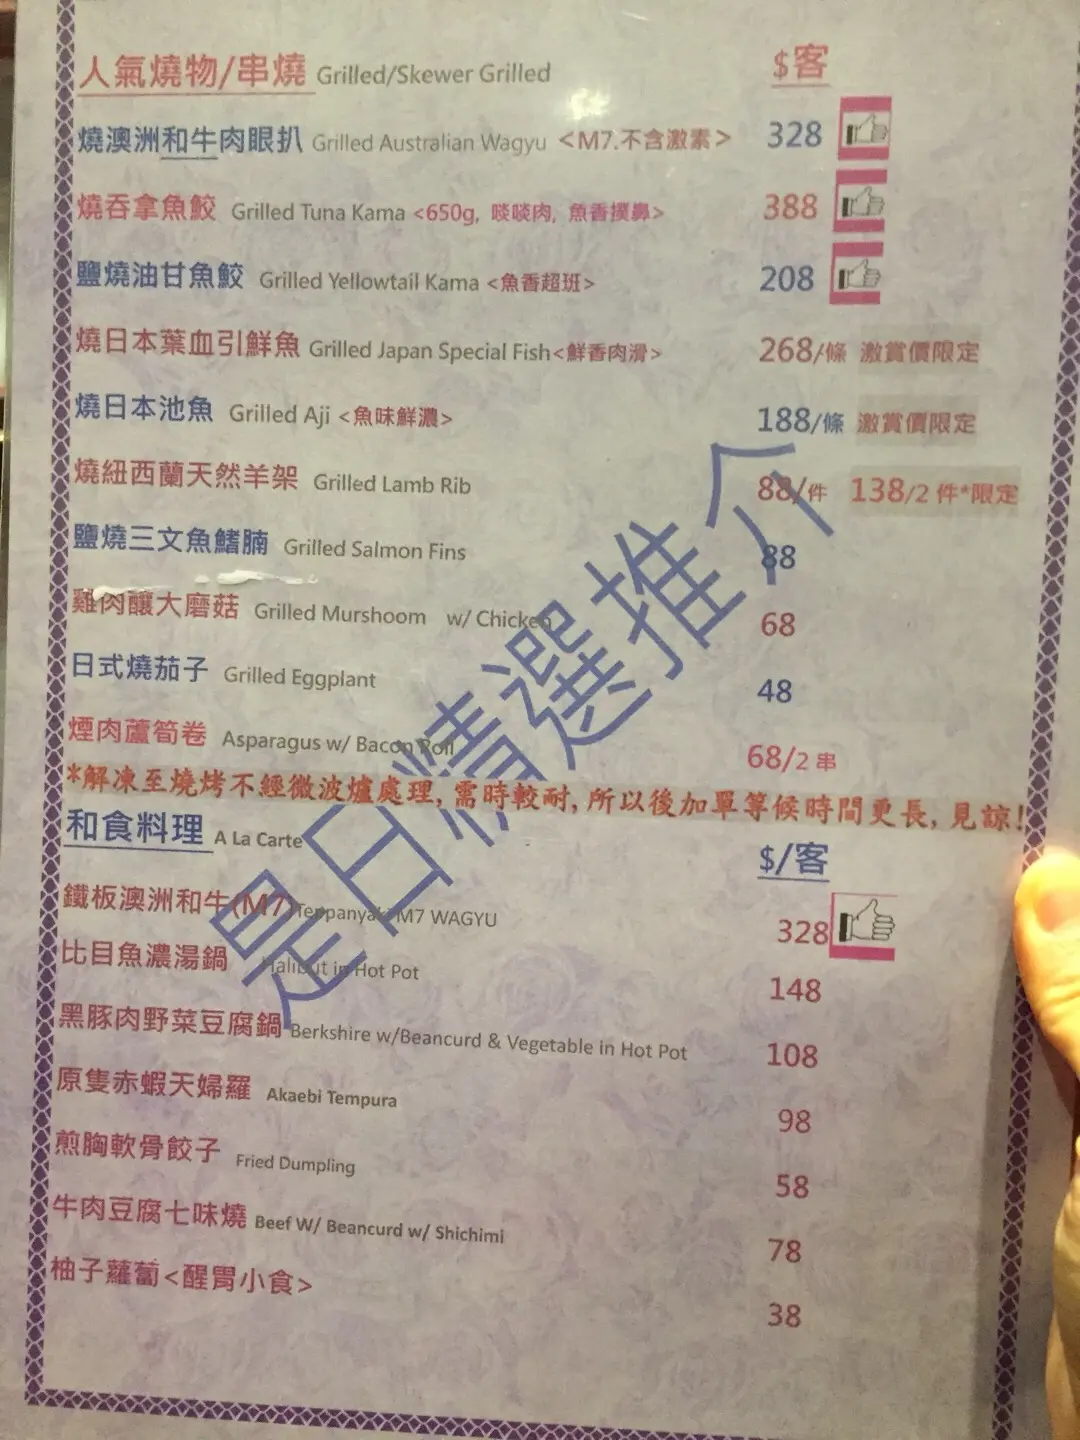 人氣燒物/串燒 Grilled/Skewer Grilled $客
燒澳洲和牛肉眼扒 Grilled Australian Wagyu <M7.不含激素> 328
燒吞拿魚鮫 Grilled Tuna Kama <650g, 啖啖肉, 魚香撲鼻> 388
鹽燒油甘魚鮫 Grilled Yellowtail Kama <魚香超班> 208
燒日本葉血引鮮魚 Grilled Japan Special Fish<鮮香肉滑> 268/條 激賞價限定
燒日本池魚 Grilled Aji <魚味鮮濃> 188/條 激賞價限定
燒紐西蘭天然羊架 Grilled Lamb Rib 88/件 138/2 件*限定
鹽燒三文魚鰭腩 Grilled Salmon Fins 88
雞肉釀大磨菇 Grilled Murshoom w/ Chicken 68
日式燒茄子 Grilled Eggplant 48
煙肉蘆筍卷 Asparagus w/ Bacon Roll 68/2 串
*解凍至燒烤不經微波爐處理, 需時較耐, 所以後加單等候時間更長, 見諒!
和食料理 A La Carte $/客
鐵板澳洲和牛(M7) Teppanyaki M7 WAGYU 328
比目魚濃湯鍋 Halibut in Hot Pot 148
黑豚肉野菜豆腐鍋 Berkshire w/Beancurd & Vegetable in Hot Pot 108
原隻赤蝦天婦羅 Akaebi Tempura 98
煎胸軟骨餃子 Fried Dumpling 58
牛肉豆腐七味燒 Beef W/ Beancurd w/ Shichimi 78
柚子蘿蔔<醒胃小食> 38
是日精選推介